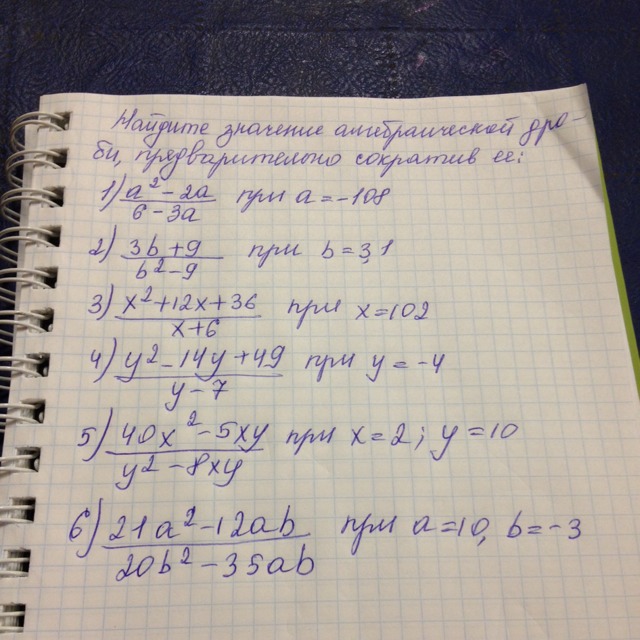 Найдите значение алгебраической дро-
би, предварительно сократив ее:
1) (a² - 2a)/(6 - 3a) при a = -108
2) (3b + 9)/(b² - 9) при b = 3,1
3) (x² + 12x + 36)/(x + 6) при x = 102
4) (y² - 14y + 49)/(y - 7) при y = -4
5) (40x² - 5xy)/(y² - 8xy) при x = 2; y = 10
6) (21a² - 12ab)/(20b² - 35ab) при a = 10, b = -3